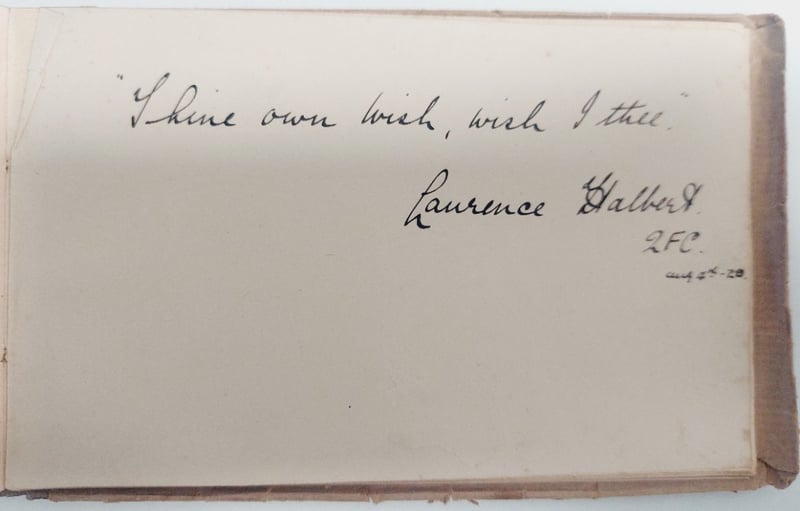 "Thine own wish, wish I thee."
Laurence Halbert.
2FC.
Aug 4th-28.